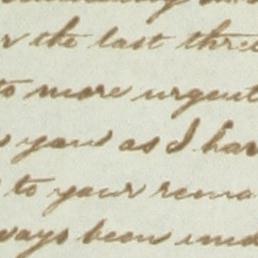 r the last three
to more urgent
you as I hav
to your rema
ways been ind